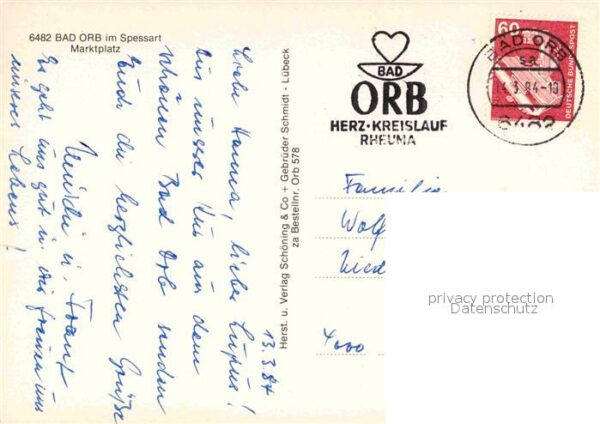 6482 BAD ORB im Spessart
Marktplatz
13.3.84
Liebe Hanna, lieber Lupus!
Aus unserer Kur aus dem
schönen Bad Orb senden
Euch die herzlichsten Grüße
u. Frank
Es geht uns gut u. wir freuen uns
unseres Lebens!
Herst. u. Verlag Schöning & Co + Gebrüder Schmidt - Lübeck
za Bestellnr. Orb 578
BAD
ORB
HERZ·KREISLAUF
RHEUMA
60
DEUTSCHE BUNDESPOST
BAD ORB
14.3.84-10
6482
Familie
Wolf
Nied
4000
privacy protection
Datenschutz